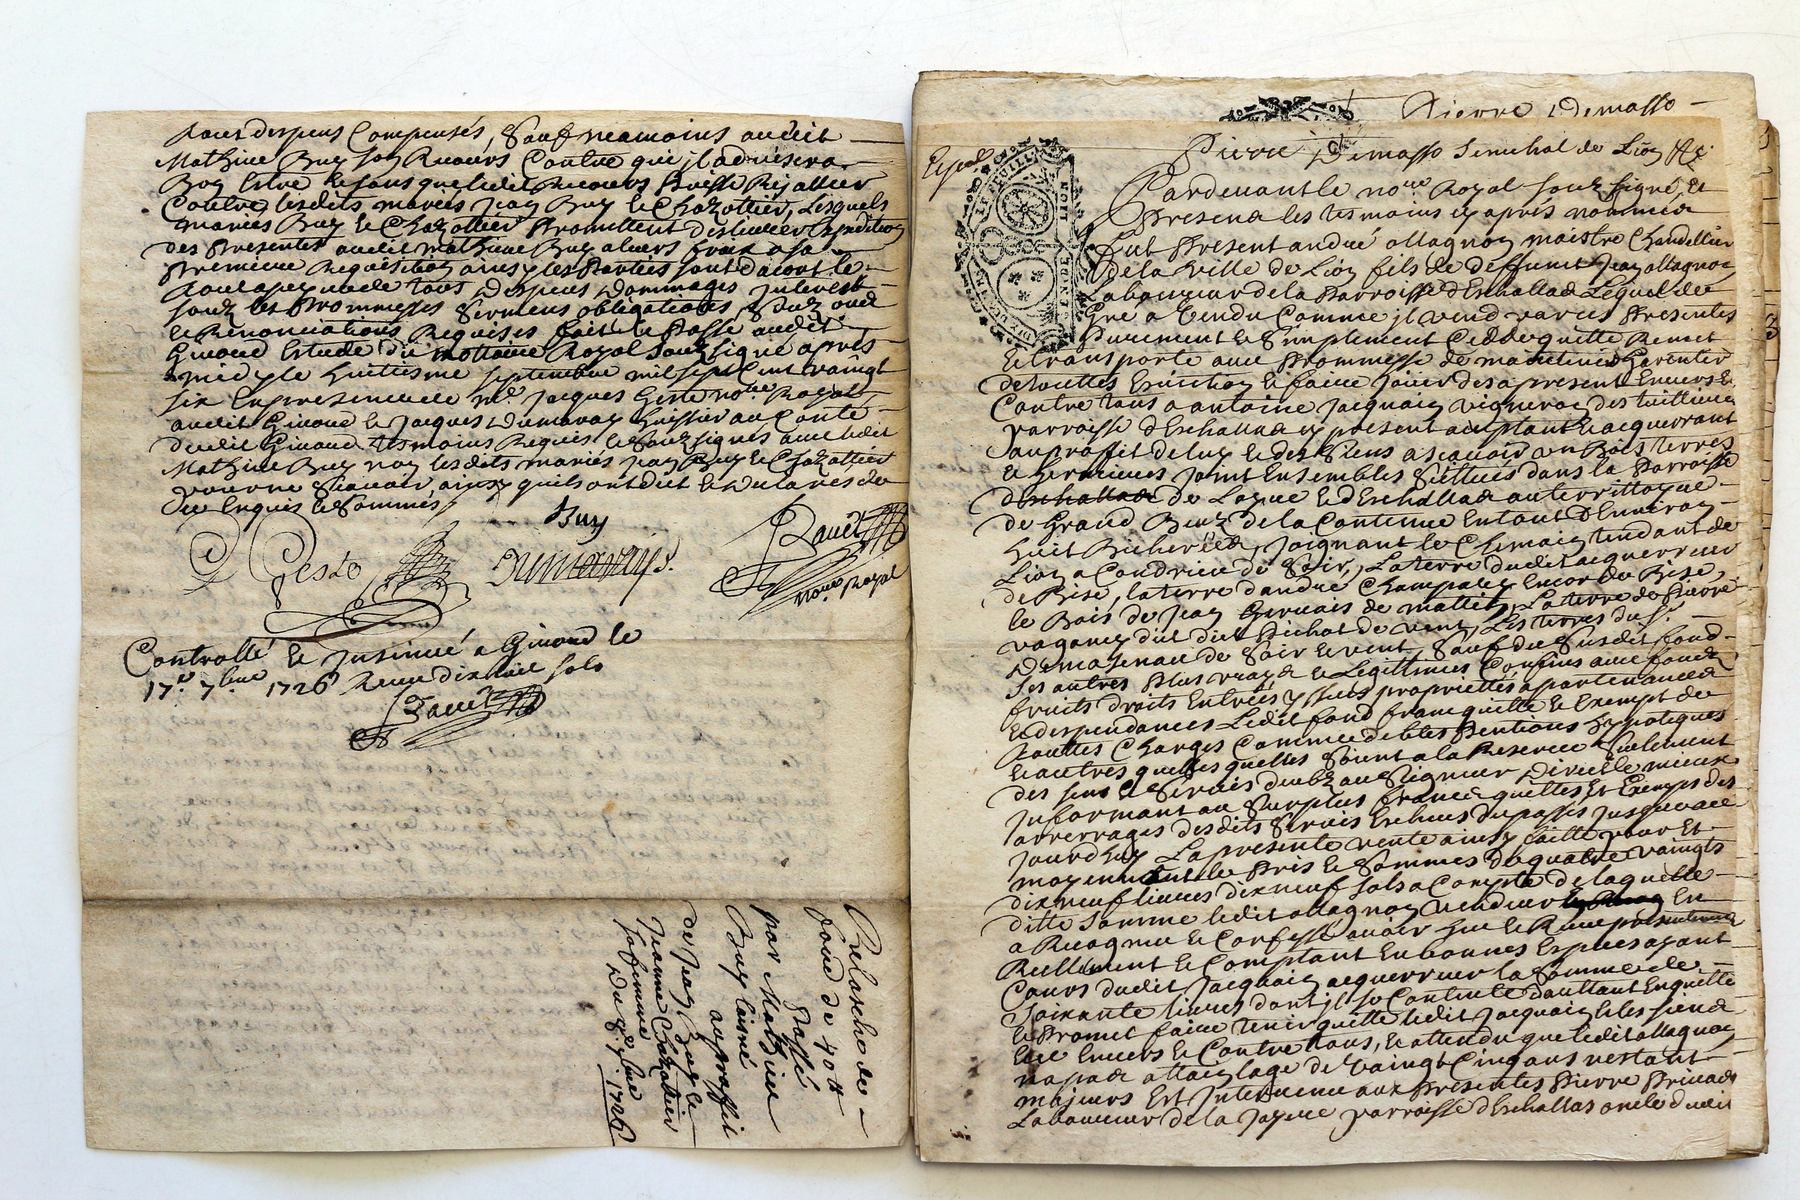 tous despens Compensés, Sauf neamoins audit
Mathieu Buy son Recours Contre qui jl advisera
Bon Estre Sans que ledit Recours Puisse Rejallier
Contre lesdits mariés Jean Buy Et Chazottier, Lesquels
mariés Buy Et Chazottier Promettent dellivrer Expedition
des Presentes audit Mathieu Buy a leurs frais a sa
Premiere Requisition ainsy les Parties sont d'acort Le
tout a peyne de tous Despens Dommages Interest
soubz les Promesses Sermens obligations, Soubz
et Renonciations Requises fait Et Passé audit
Givord Estude du nottaire Royal Soubsigné apres
midy le huitiesme septembre mil sept Cent vaingt
six En presence de me. Jacques Geste nore. Royal
audit Givord Et Jacques Dumaray huissier au Conté
dudit Givord tesmoins Requis Et Soubsignés avec ledit
Mathieu Buy non lesdits mariés Jean Buy Et Chazottier
pour ne Sçavoir ainsy quils ont dit Et declarés de
Ce Enquis Et Sommés
Geste Buy Dumaray. Bauet
nore. Royal
Controllé Et Insinué a Givord le
17.e 7bre 1726 Receu dix huit sols
Bauet
Relasche de
fond de 40 tt
Passé
par Mathieu
Buy laisné
au proffit
de Jean Buy Et
Jeanne Chazottier
sa femme
Du 8e. 7bre
1726
Pierre Demasso
Pierre Demasso Senechal de Lion &c
GNRALITE DE LION
Pardevant le nore Royal soubsigné, Et
Presens les tesmoins cy aprés nommés
Fut Present andré allagnon maistre Chandellier
de la ville de Lion fils de deffunt Jean allagnon
Laboureur de la Parroisse d'Eschallas Lequel de
Gré a Vendu Comme jl vend par ces Presentes
Purement Et Simplement Cedde quitte Remet
Et transporte avec Promesse de maintenir Garentir
de touttes Eviction Et faire Jouir des a present Envers Et
Contre tous a antoine Jacquain vigneron des tuillieres
parroisse d'Eschallas cy present acceptant Et acquerrant
au proffit de luy Et des Siens a sçavoir un Bois terres
Et hermieres Joint Ensembles Scittués dans la Parroisse
de Loyre Et d'Eschallas au territtoyre
de Grand Beuz de la Contenue En tout D'Environ
huit Bicherées, Joignant le Chemain tendant de
Lion a Condrieu de Soir, La terre dudit acquerreur
de Bise, la terre dandré Champalay Encor de Bise,
le Bois de Jean Gervais de matin, La terre de Pierre
vaganey dit Pichat de vent, Les terres du Sr.
Demasenau de Soir Et vent, Sauf du Susdit fond
Ses autres Plus vrays Et Legittimes Confins avec fonds
fruits droits Entrées ysues proprietés apartenances
Et despendances Ledit fond franc quitte Et Exempt de
touttes Charges Comme debtes Pentions hypoteques
Et autres quelles quelles Soient a la Reserve Seulement
des sens Et Servis deubz au Seigneur Direct le mieux
Informant au Surplus francs quittes Et Exemps des
arrerages desdits Servis Escheus du passés Jusques a ce
Jourd'huy La presente vente ainsy faitte pour Et
moyennant le Pris Et Somme de quatre vaingts
dix neuf livres dix neuf sols a Compte de laquelle
ditte Somme ledit allagnon vendeur En
a Recognu Et Confessé avoir Heu Et Receu presentement
Reellement Et Comptant En bonnes Especes ayant
Cours dudit Jacquain acquerreur la Somme de
Soixante livres dont jl se Contente dauttant Enquitte
Et Promet faire tenir quitte ledit Jacquain Et les siens
Envers Et Contre tous, Et attendu que ledit allagnon
na pas attain lage de vaingt Cinq ans restant
majeurs Est Intervenu aux Presentes Pierre Privas
Laboureur de la Jayere parroisse d'Eschallas oncle dudit